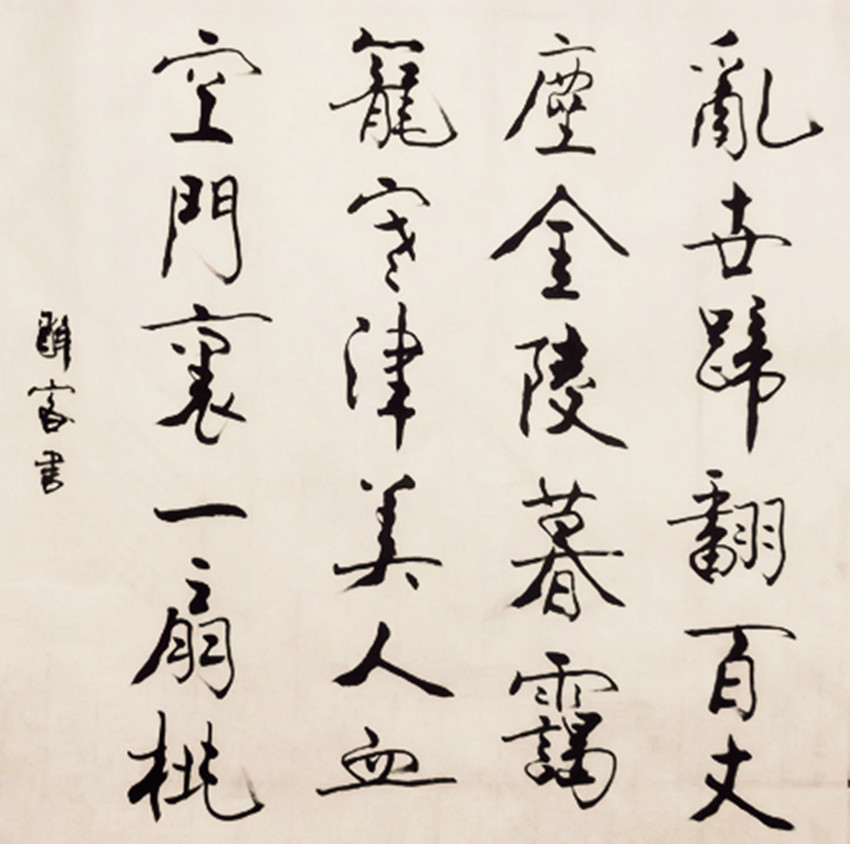 亂世蹄翻百丈
塵金陵暮靄
籠寒津美人血
空門裏一扇桃
客書